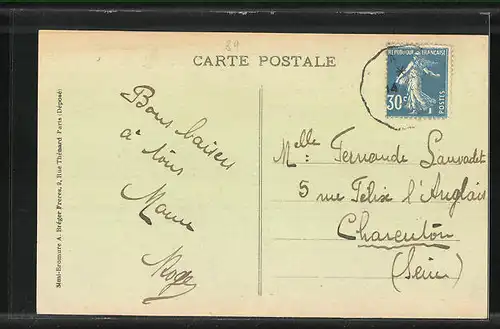 29
CARTE POSTALE
REPUBLIQUE FRANÇAISE
30c
POSTES
14
Bons baisers
à tous
Roger
Melle: Fernande Sauvadet
5 rue Felix l'Anglais
Charenton
(Seine)
Semi-Bromure A. Bréger Frères, 9, Rue Thénard Paris (Déposé)